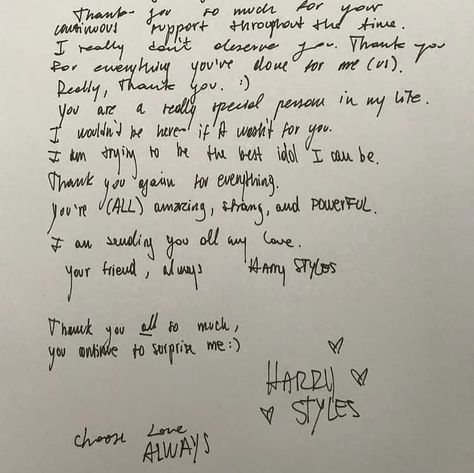 Thank you so much for your
continuous support throughout the time.
I really don't deserve you. Thank you
for everything you've done for me (us).
Really, Thank you. :)
You are a really special person in my life.
I wouldn't be here if it wasn't for you.
I am trying to be the best idol I can be.
Thank you again for everything.
You're (ALL) amazing, strong, and POWERFUL.
I am sending you all my love.
your friend, always Harry STYLES
Thank you all so much,
you continue to surprise me :)
HARRY
STYLES
choose Love
ALWAYS